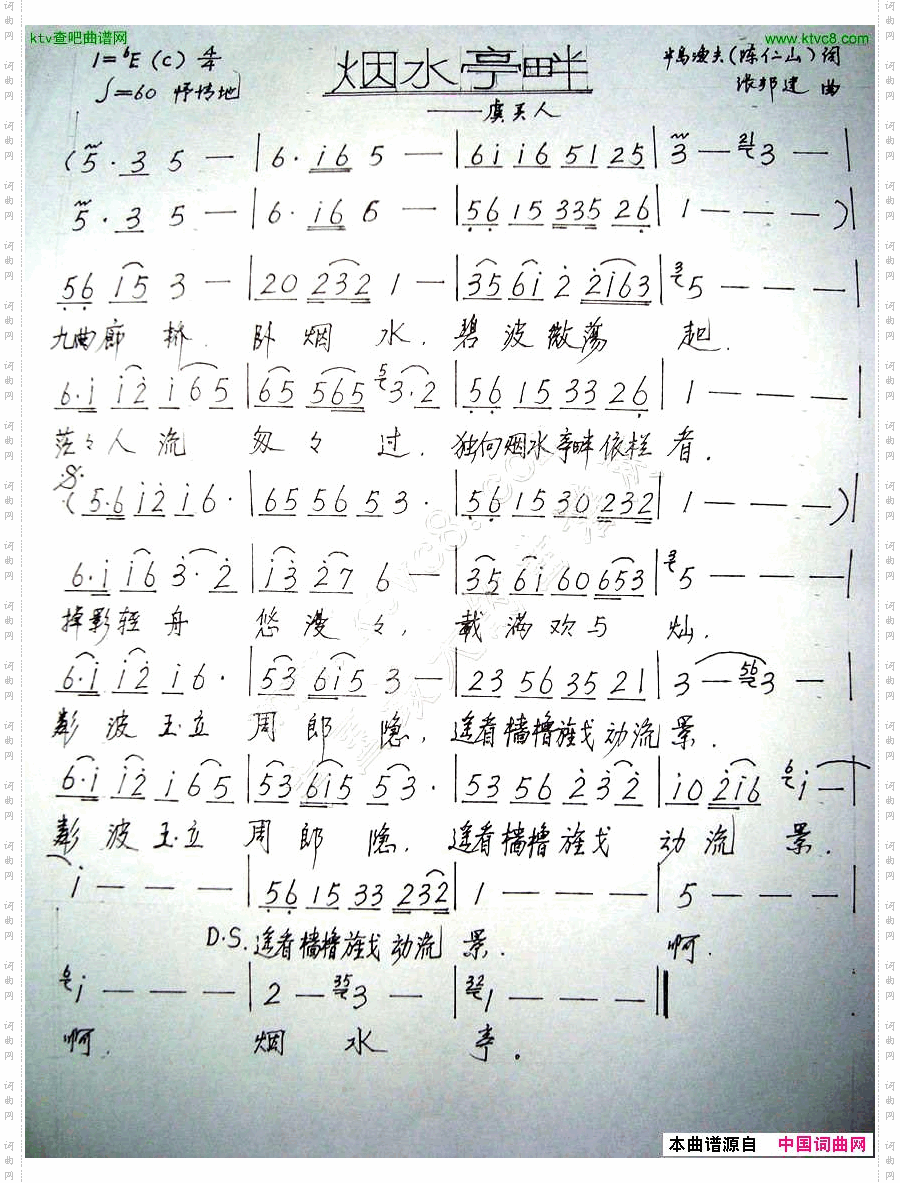 ktv查吧曲谱网
www.ktvc8.com
烟水亭畔
——虞美人
1=♭E(C) 4/4
♩=60 抒情地
半鸟渔夫(陈仁山)词
张邦建 曲
(5·3 5 — | 6·i6 5 — | 6i i6 51 25 | 3 — 3 — |
5·3 5 — | 6·i6 6 — | 56 15 335 26 | 1 — — — )|
56 i5 3 — | 20 232 1 — | 35 6i 2 2i63 | 5 — — — |
九曲廊桥.卧烟水.碧波微荡起.
6·i i2 i65 | 65 565 3·2 | 56 15 33 26 | 1 — — — |
茫々人流匆々过.独向烟水亭畔依栏看.
(5·6 i2 i6· | 65 56 53· | 56 15 30 232 | 1 — — — )|
6·i i6 3·2 | i3 27 6 — | 35 6i 60 653 | 5 — — — |
掉影轻舟悠漫々,载满欢与灿.
6·i i2 i6· | 53 6i5 3 — | 23 56 35 21 | 3 — 3 — |
粼波玉立周郎隐,遥看樯橹旌戈动流景.
6·i i2 i65 | 53 6i5 53· | 53 56 232 | i0 2i6 i — |
粼波玉立周郎隐.遥看樯橹旌戈动流景.
i — — — | 56 15 33 232 | 1 — — — | 5 — — — |
D.S. 遥看樯橹旌戈动流景.啊.
i — — — | 2 — 3 — | 1 — — — ‖
啊.烟水亭.
本曲谱源自 中国词曲网